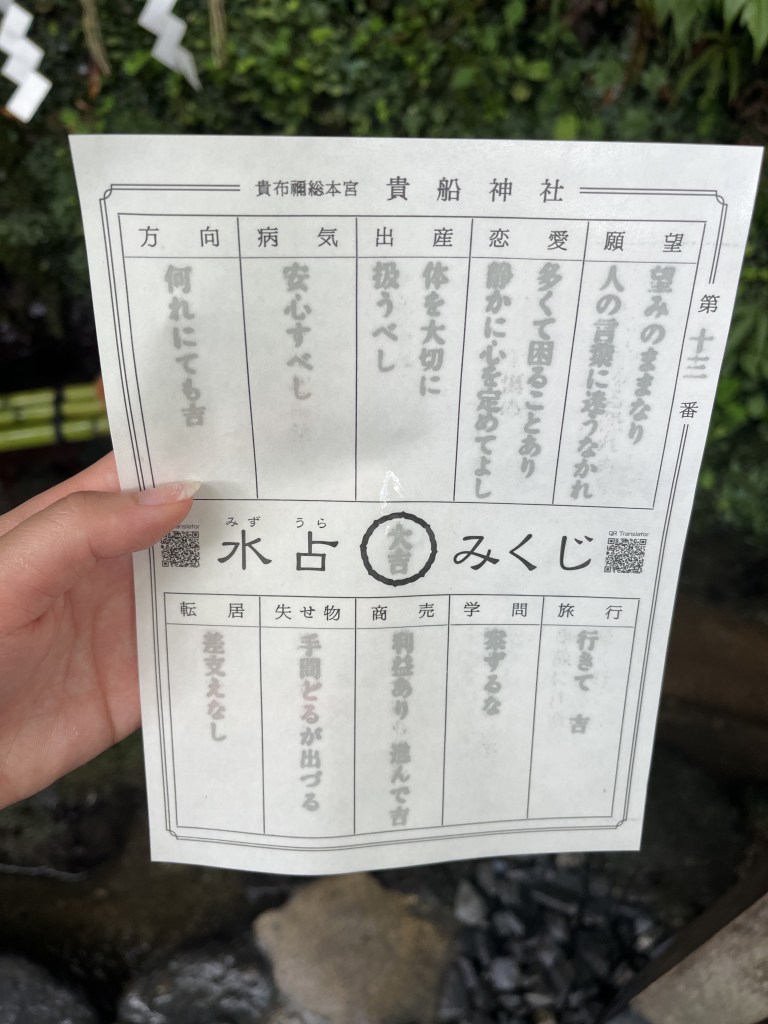 貴布禰総本宮 貴船神社
第十三番
願望
望みのままなり
人の言葉に違うなかれ
恋愛
多くて困ることあり
静かに心を定めてよし
出産
体を大切に
扱うべし
病気
安心すべし
方向
何れにても吉
みず うら
水占
大吉
みくじ
QR Translator
旅行
行きて 吉
学問
案ずるな
商売
利益あり 進んで吉
失せ物
手間どるが出づる
転居
差支えなし